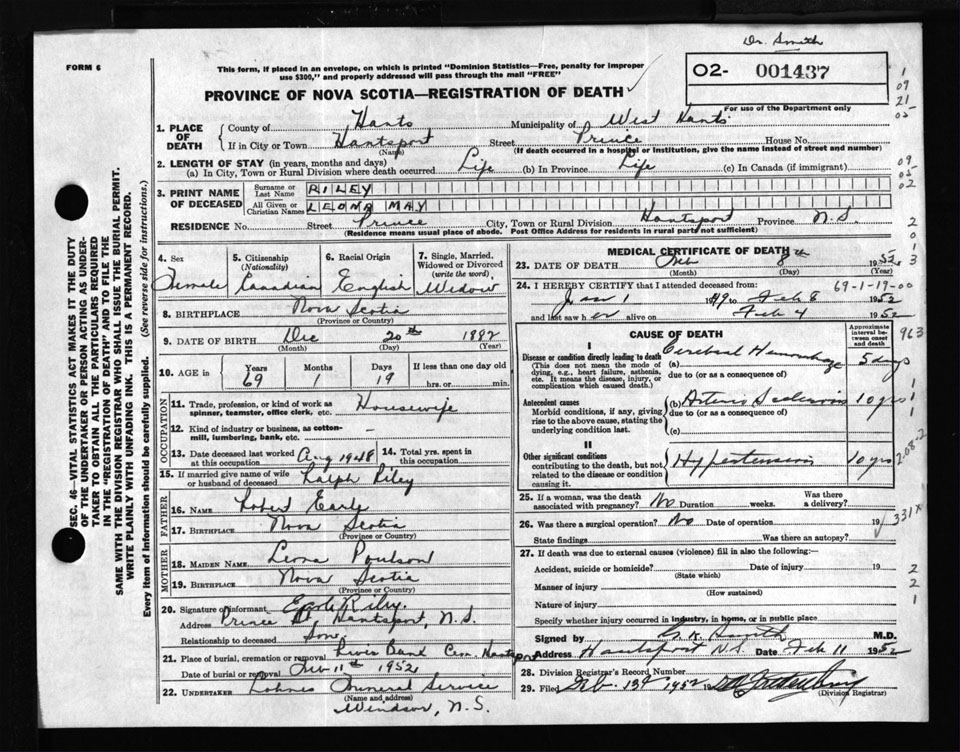 Dr. Smith
FORM 6
This form, if placed in an envelope, on which is printed "Dominion Statistics—Free, penalty for improper
use $300," and properly addressed will pass through the mail "FREE"
O2- 001437
For use of the Department only
PROVINCE OF NOVA SCOTIA—REGISTRATION OF DEATH
1. PLACE OF DEATH
County of Hants Municipality of West Hants
If in City or Town Hantsport Street Prince House No.
(Name) (If death occurred in a hospital or institution, give the name instead of street and number)
2. LENGTH OF STAY (in years, months and days)
(a) In City, Town or Rural Division where death occurred Life (b) In Province Life (c) In Canada (if immigrant)
3. PRINT NAME OF DECEASED
Surname or Last Name RILEY
All Given or Christian Names LEONA MAY
RESIDENCE No. Street Prince City, Town or Rural Division Hantsport Province N.S.
(Residence means usual place of abode. Post Office Address for residents in rural parts not sufficient)
4. Sex Female
5. Citizenship (Nationality) Canadian
6. Racial Origin English
7. Single, Married, Widowed or Divorced (write the word) Widow
8. BIRTHPLACE Nova Scotia
(Province or Country)
9. DATE OF BIRTH Dec 20th 1882
(Month) (Day) (Year)
10. AGE in Years 69 Months 1 Days 19 If less than one day old
hrs. or min.
OCCUPATION
11. Trade, profession, or kind of work as
spinner, teamster, office clerk, etc. Housewife
12. Kind of industry or business, as cotton-
mill, lumbering, bank, etc.
13. Date deceased last worked at this occupation Aug 1948
14. Total yrs. spent in this occupation
15. If married give name of wife
or husband of deceased Ralph Riley
FATHER
16. Name Robert Early
17. Birthplace Nova Scotia
(Province or Country)
MOTHER
18. MAIDEN NAME Leona Poulson
19. BIRTHPLACE Nova Scotia
(Province or Country)
20. Signature of informant Earl Riley.
Address Prince St, Hantsport, N.S.
Relationship to deceased Son
21. Place of burial, cremation or removal River Bank Cem. Hantsport
Date of burial or removal Feb 11th 1952
22. UNDERTAKER Lohnes Funeral Service
(Name and address)
Windsor, N.S.
MEDICAL CERTIFICATE OF DEATH
23. DATE OF DEATH Feb 8th 1952
(Month) (Day) (Year)
24. I HEREBY CERTIFY that I attended deceased from: 69-1-19-00
Jan 1 1949 to Feb 8 1952
and last saw her alive on Feb 4 1952
CAUSE OF DEATH
Approximate interval between onset and death
I
Disease or condition directly leading to death
(This does not mean the mode of
dying, e.g., heart failure, asthenia,
etc. It means the disease, injury, or
complication which caused death.)
(a) Cerebral Hemorrhage 5 days
due to (or as a consequence of)
Antecedent causes
Morbid conditions, if any, giving
rise to the above cause, stating the
underlying condition last.
(b) Arterio Sclerosis 10 yrs
due to (or as a consequence of)
(c)
II
Other significant conditions
contributing to the death, but not
related to the disease or condition
causing it.
Hypertension 10 yrs
25. If a woman, was the death
associated with pregnancy? No Duration weeks. Was there a delivery?
26. Was there a surgical operation? No Date of operation 19
State findings Was there an autopsy?
27. If death was due to external causes (violence) fill in also the following:—
Accident, suicide or homicide? Date of injury 19
(State which)
Manner of injury
(How sustained)
Nature of injury
Specify whether injury occurred in industry, in home, or in public place
Signed by G. K. Smith M.D.
Address Hantsport N.S. Date Feb 11 1952
28. Division Registrar's Record Number
29. Filed Feb. 13th 1952
(Division Registrar)
SEC. 46—VITAL STATISTICS ACT MAKES IT THE DUTY
OF THE UNDERTAKER OR PERSON ACTING AS UNDER-
TAKER TO OBTAIN ALL THE PARTICULARS REQUIRED
IN THE "REGISTRATION OF DEATH" AND TO FILE THE
SAME WITH THE DIVISION REGISTRAR WHO SHALL ISSUE THE BURIAL PERMIT.
WRITE PLAINLY WITH UNFADING INK. THIS IS A PERMANENT RECORD.
Every item of information should be carefully supplied. (See reverse side for instructions.)
1
09
21
09
02
2
0
1
3
963
1
1
331X
2
2
1